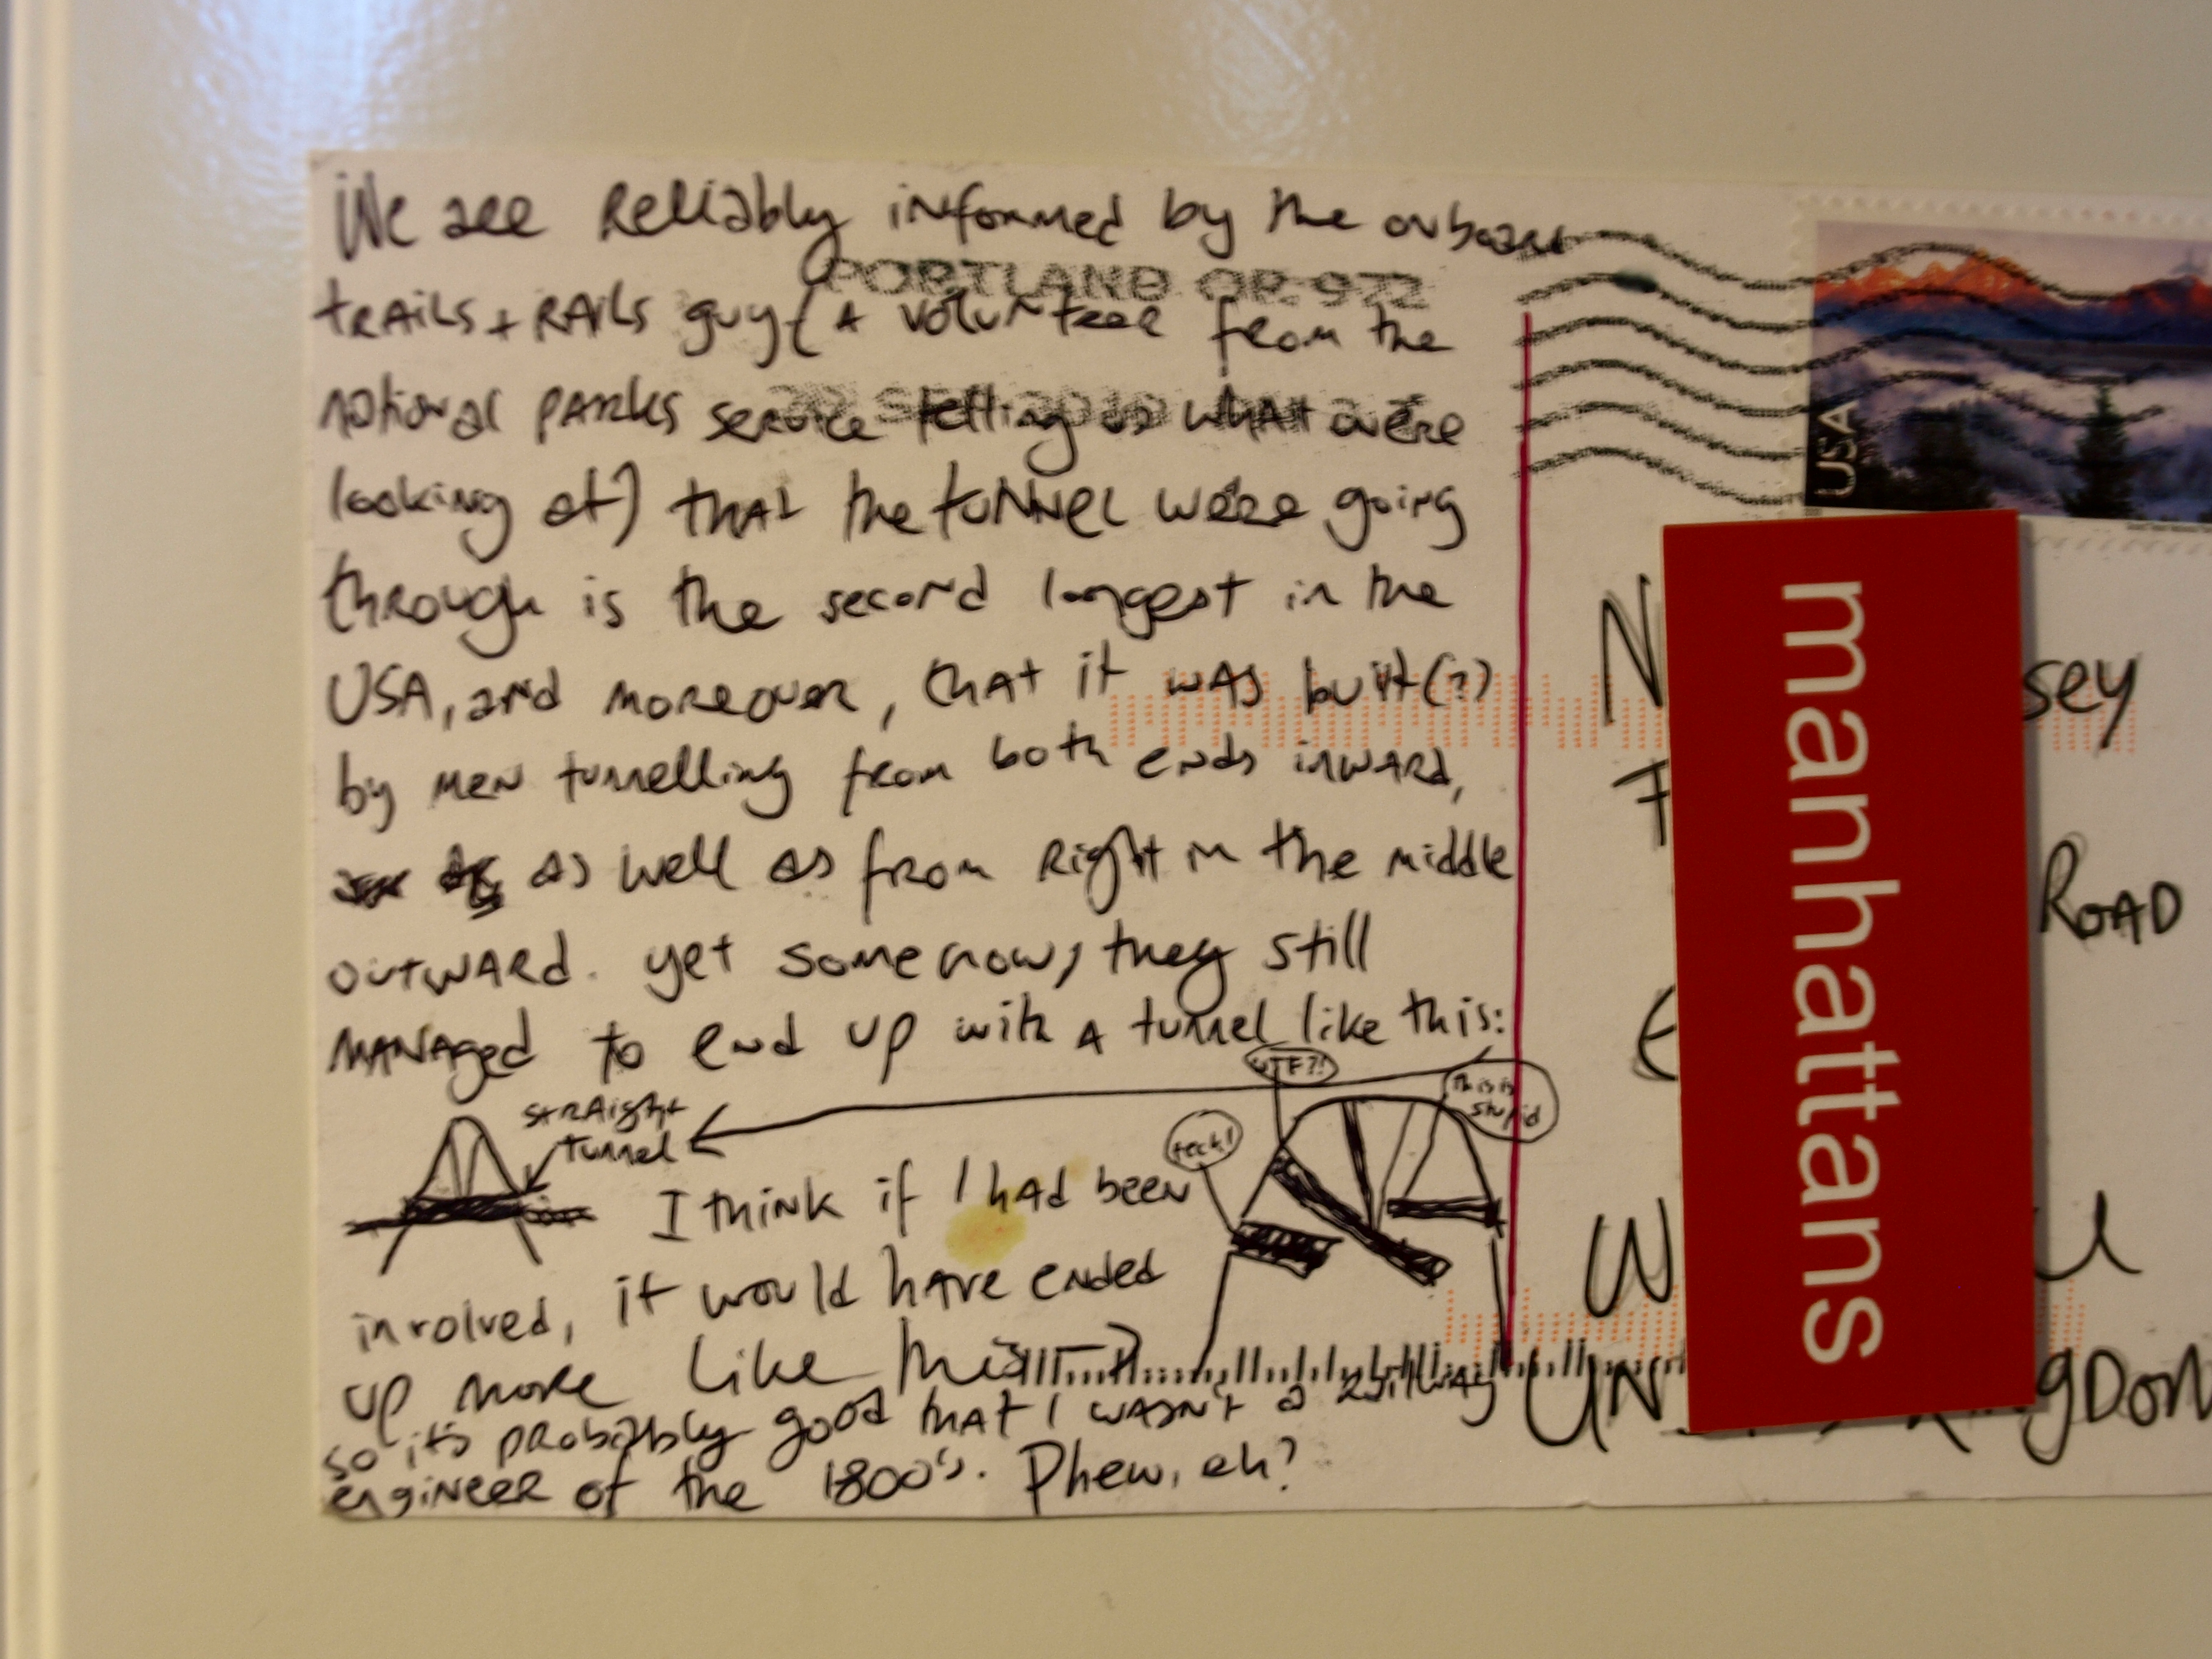 We are reliably informed by the onboard
PORTLAND OR 972
trails + rails guy (a volunteer from the
national parks service telling us what we're
looking at) that the tunnel we're going
through is the second longest in the
USA, and moreover, that it was built(?)
by men tunnelling from both ends inward,
as well as from right in the middle
outward. yet somehow, they still
managed to end up with a tunnel like this:
WTF?!
This is
stupid
feck!
straight
tunnel
I think if I had been
involved, it would have ended
up more like this
so it's probably good that I wasn't a railway
engineer of the 1800's. Phew, eh?
USA
manhattans
sey
Road